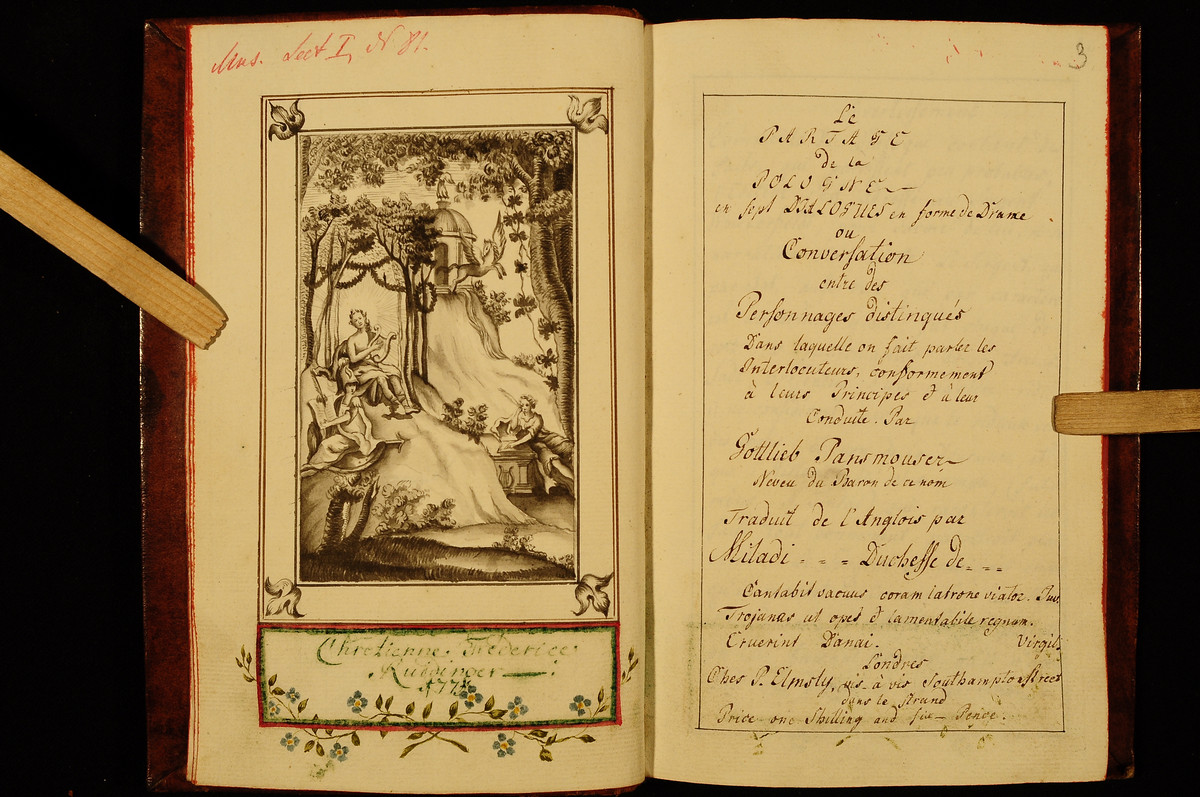 Mus. Sect I, N 81.
Chretienne Frederice
3
Le
PARTAGE
de la
POLOGNE
en sept DIALOGUES en forme de Drame
ou
Conversation
entre des
Personnages distingués
Dans laquelle on fait parler les
Interlocuteurs, conformement
à leurs Principes et à leur
Conduite. Par
Gottlieb Pansmouser
Neveu du Baron de ce nom
Traduit de l'Anglois par
Miladi - - - Duchesse de - - -
Cantabit vacuus coram latrone viator. Juv.
Trojanas ut opes et lamentabile regnum.
Eruerint Danai. Virgil.
Londres
Ches P. Elmsly, vis à vis Southampton Street
dans le Strand
Price one Shilling and six Pence.